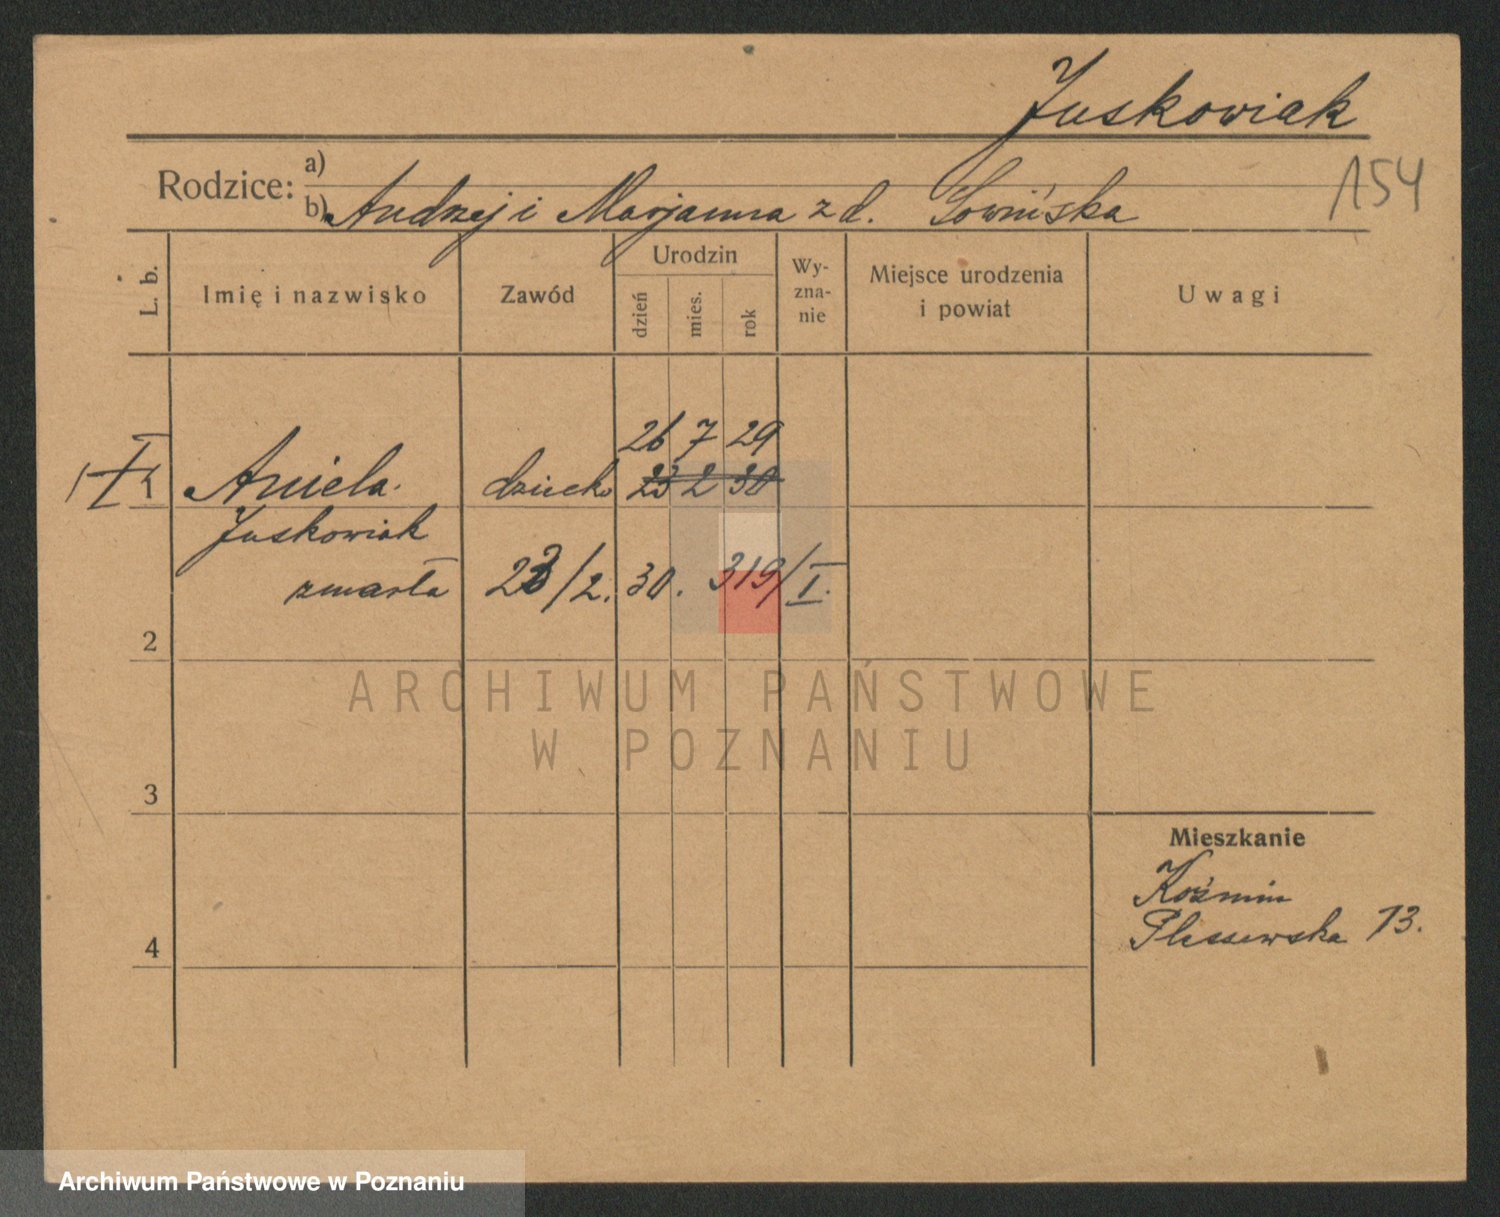 Juskowiak
154
Rodzice: a)
b) Andrzej i Marjanna z d. Sowińska
L. b.
Imię i nazwisko
Zawód
Urodzin
dzień
mies.
rok
Wy-
zna-
nie
Miejsce urodzenia
i powiat
Uwagi
26 7 29
1 Aniela dziecko 23 2 30
Juskowiak
zmarła 23/2. 30. 319/I.
2
3
4
Mieszkanie
Koźmin
Pleszewska 13.
ARCHIWUM PAŃSTWOWE
W POZNANIU
Archiwum Państwowe w Poznaniu